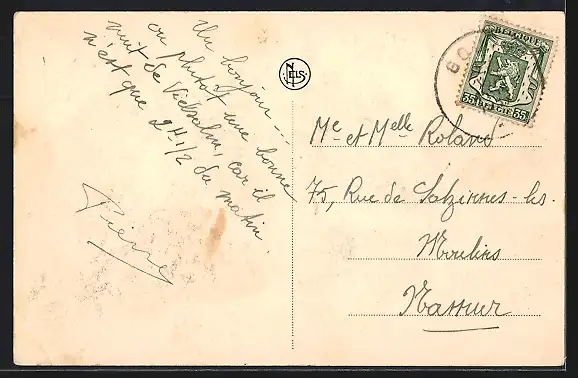 Un bonjour...
ou plutôt une bonne
nuit de Vielsalm, car il
n'est que 2 H 1/2 du matin.
Pierre
NELS
BELGIQUE
35 35
BELGIË
Me et Melle Roland
75, Rue de Salzinnes-les-
Moulins
Namur